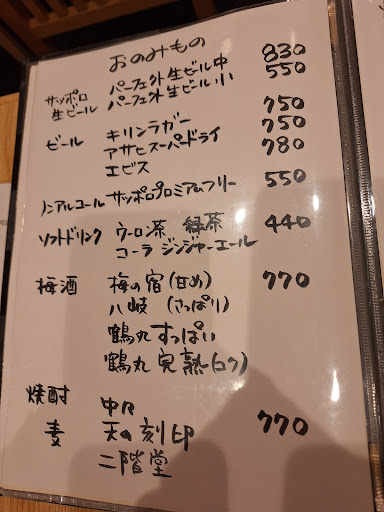 おのみもの
サッポロ生ビール パーフェクト生ビール中 830
パーフェクト生ビール小 550
ビール キリンラガー 750
アサヒスーパードライ 750
エビス 780
ノンアルコール サッポロプレミアムフリー 550
ソフトドリンク ウーロン茶 緑茶 440
コーラ ジンジャーエール
梅酒 梅の宿(甘め) 770
八岐 (さっぱり)
鶴丸すっぱい
鶴丸 完熟
焼酎 中々
麦 天の刻印 770
二階堂